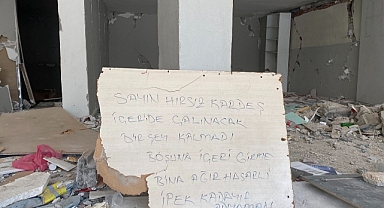 SAYIN HIRSIZ KARDEŞ
İÇERİDE ÇALINACAK
BİRŞEY KALMADI
BOŞUNA İÇERİ GİRME
BİNA AĞIR HASARLI
İPEK